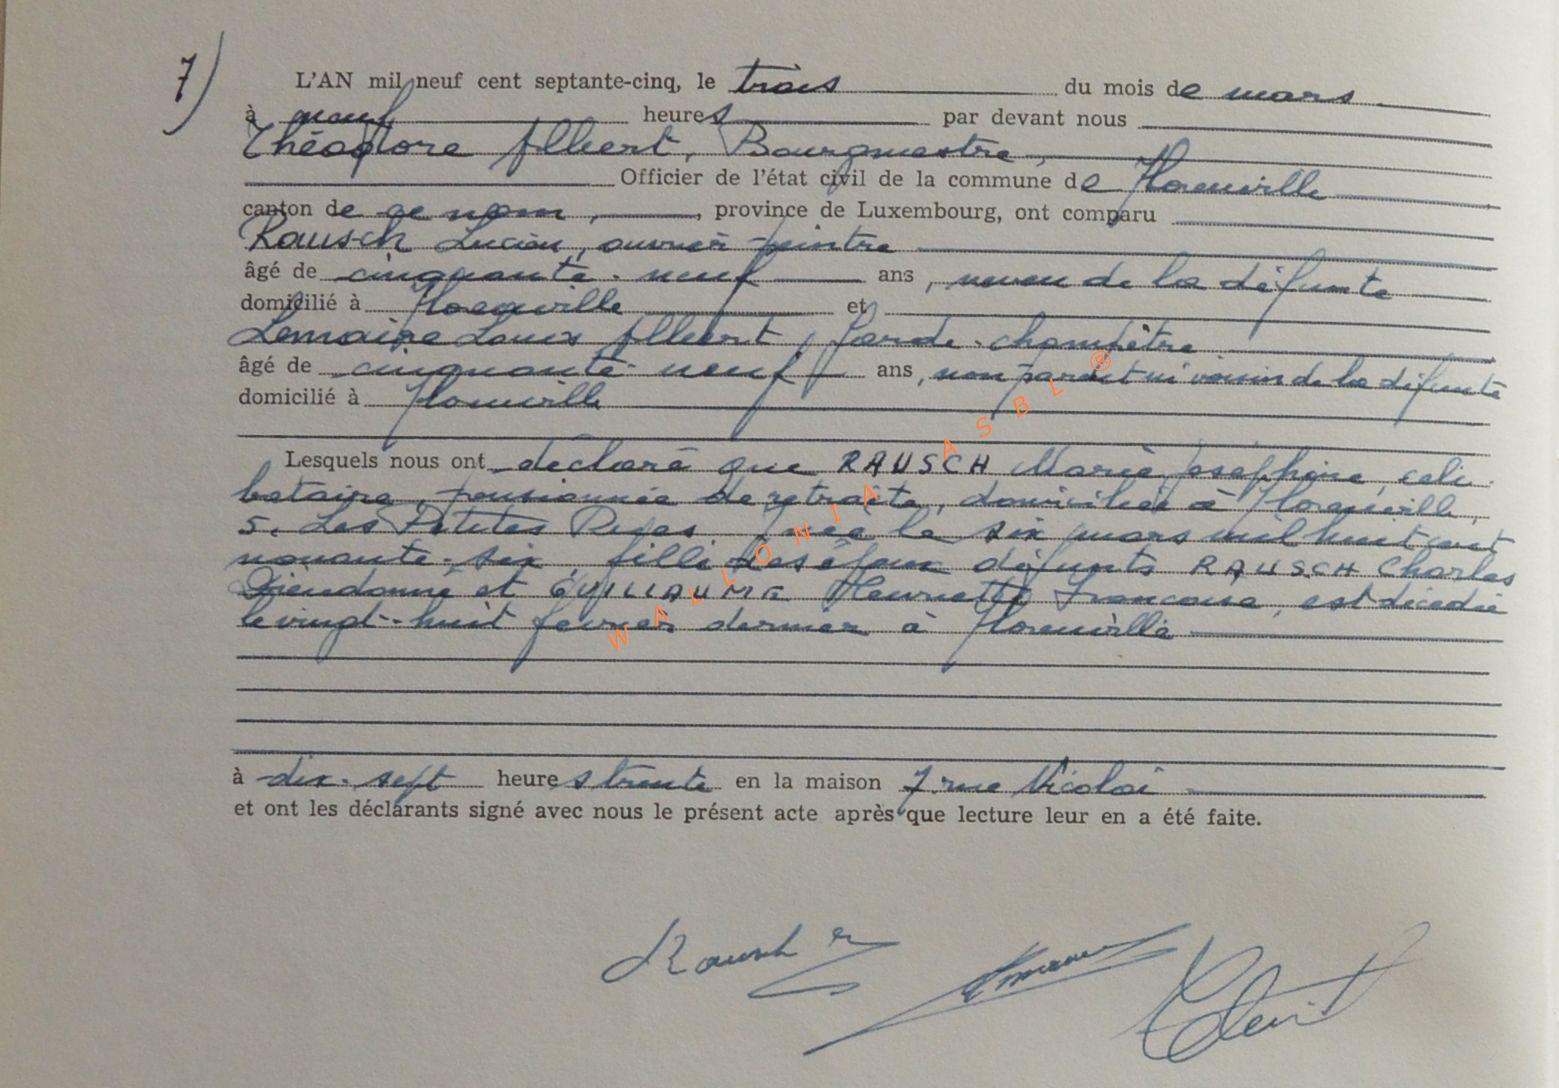 7)
L'AN mil neuf cent septante-cinq, le trois du mois de mars
à neuf heures par devant nous
Théodore Albert, Bourgmestre,
Officier de l'état civil de la commune de Florenville
canton de ce nom, , province de Luxembourg, ont comparu
Rausch Lucien, ouvrier-peintre
âgé de cinquante-neuf ans, neveu de la défunte
domicilié à Florenville et
Lemaire Louis Albert, Garde-champêtre
âgé de cinquante-neuf ans, non parent ni voisin de la défunte
domicilié à Florenville
Lesquels nous ont déclaré que RAUSCH Marie Josephine, céli-
bataire, pensionnée de retraite, domiciliée à Florenville,
5, Les Petites née le six mars mil huit cent
nonante-six, fille des époux défunts RAUSCH Charles
Dieudonné et GUILLAUME Henriette Françoise, est décédée
le vingt-huit février dernier à Florenville
à dix-sept heures trente en la maison 7 rue Nicolaï
et ont les déclarants signé avec nous le présent acte après que lecture leur en a été faite.
Rausch
WALLONIA ASBL ®